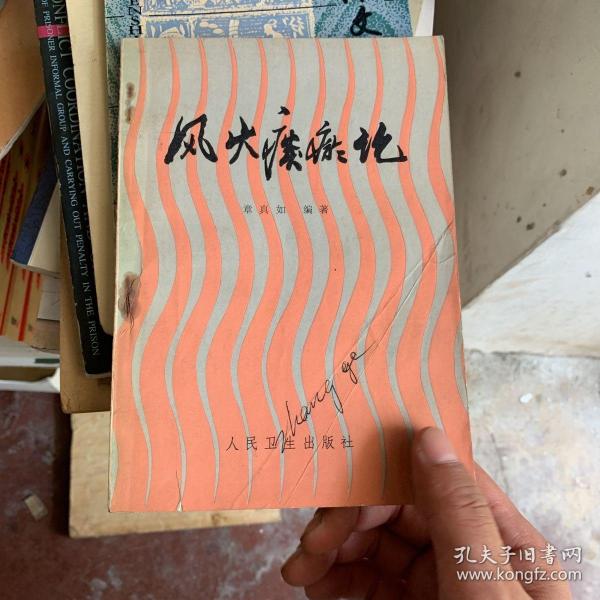 风火痰瘀论
章真如 编著
zhang ge
人民卫生出版社
CONFLICT COORDINATION
OF PRISONER INFORMAL GROUP AND CARRYING OUT PENALTY IN THE PRISON
文
孔夫子旧书网
www.kongfz.com